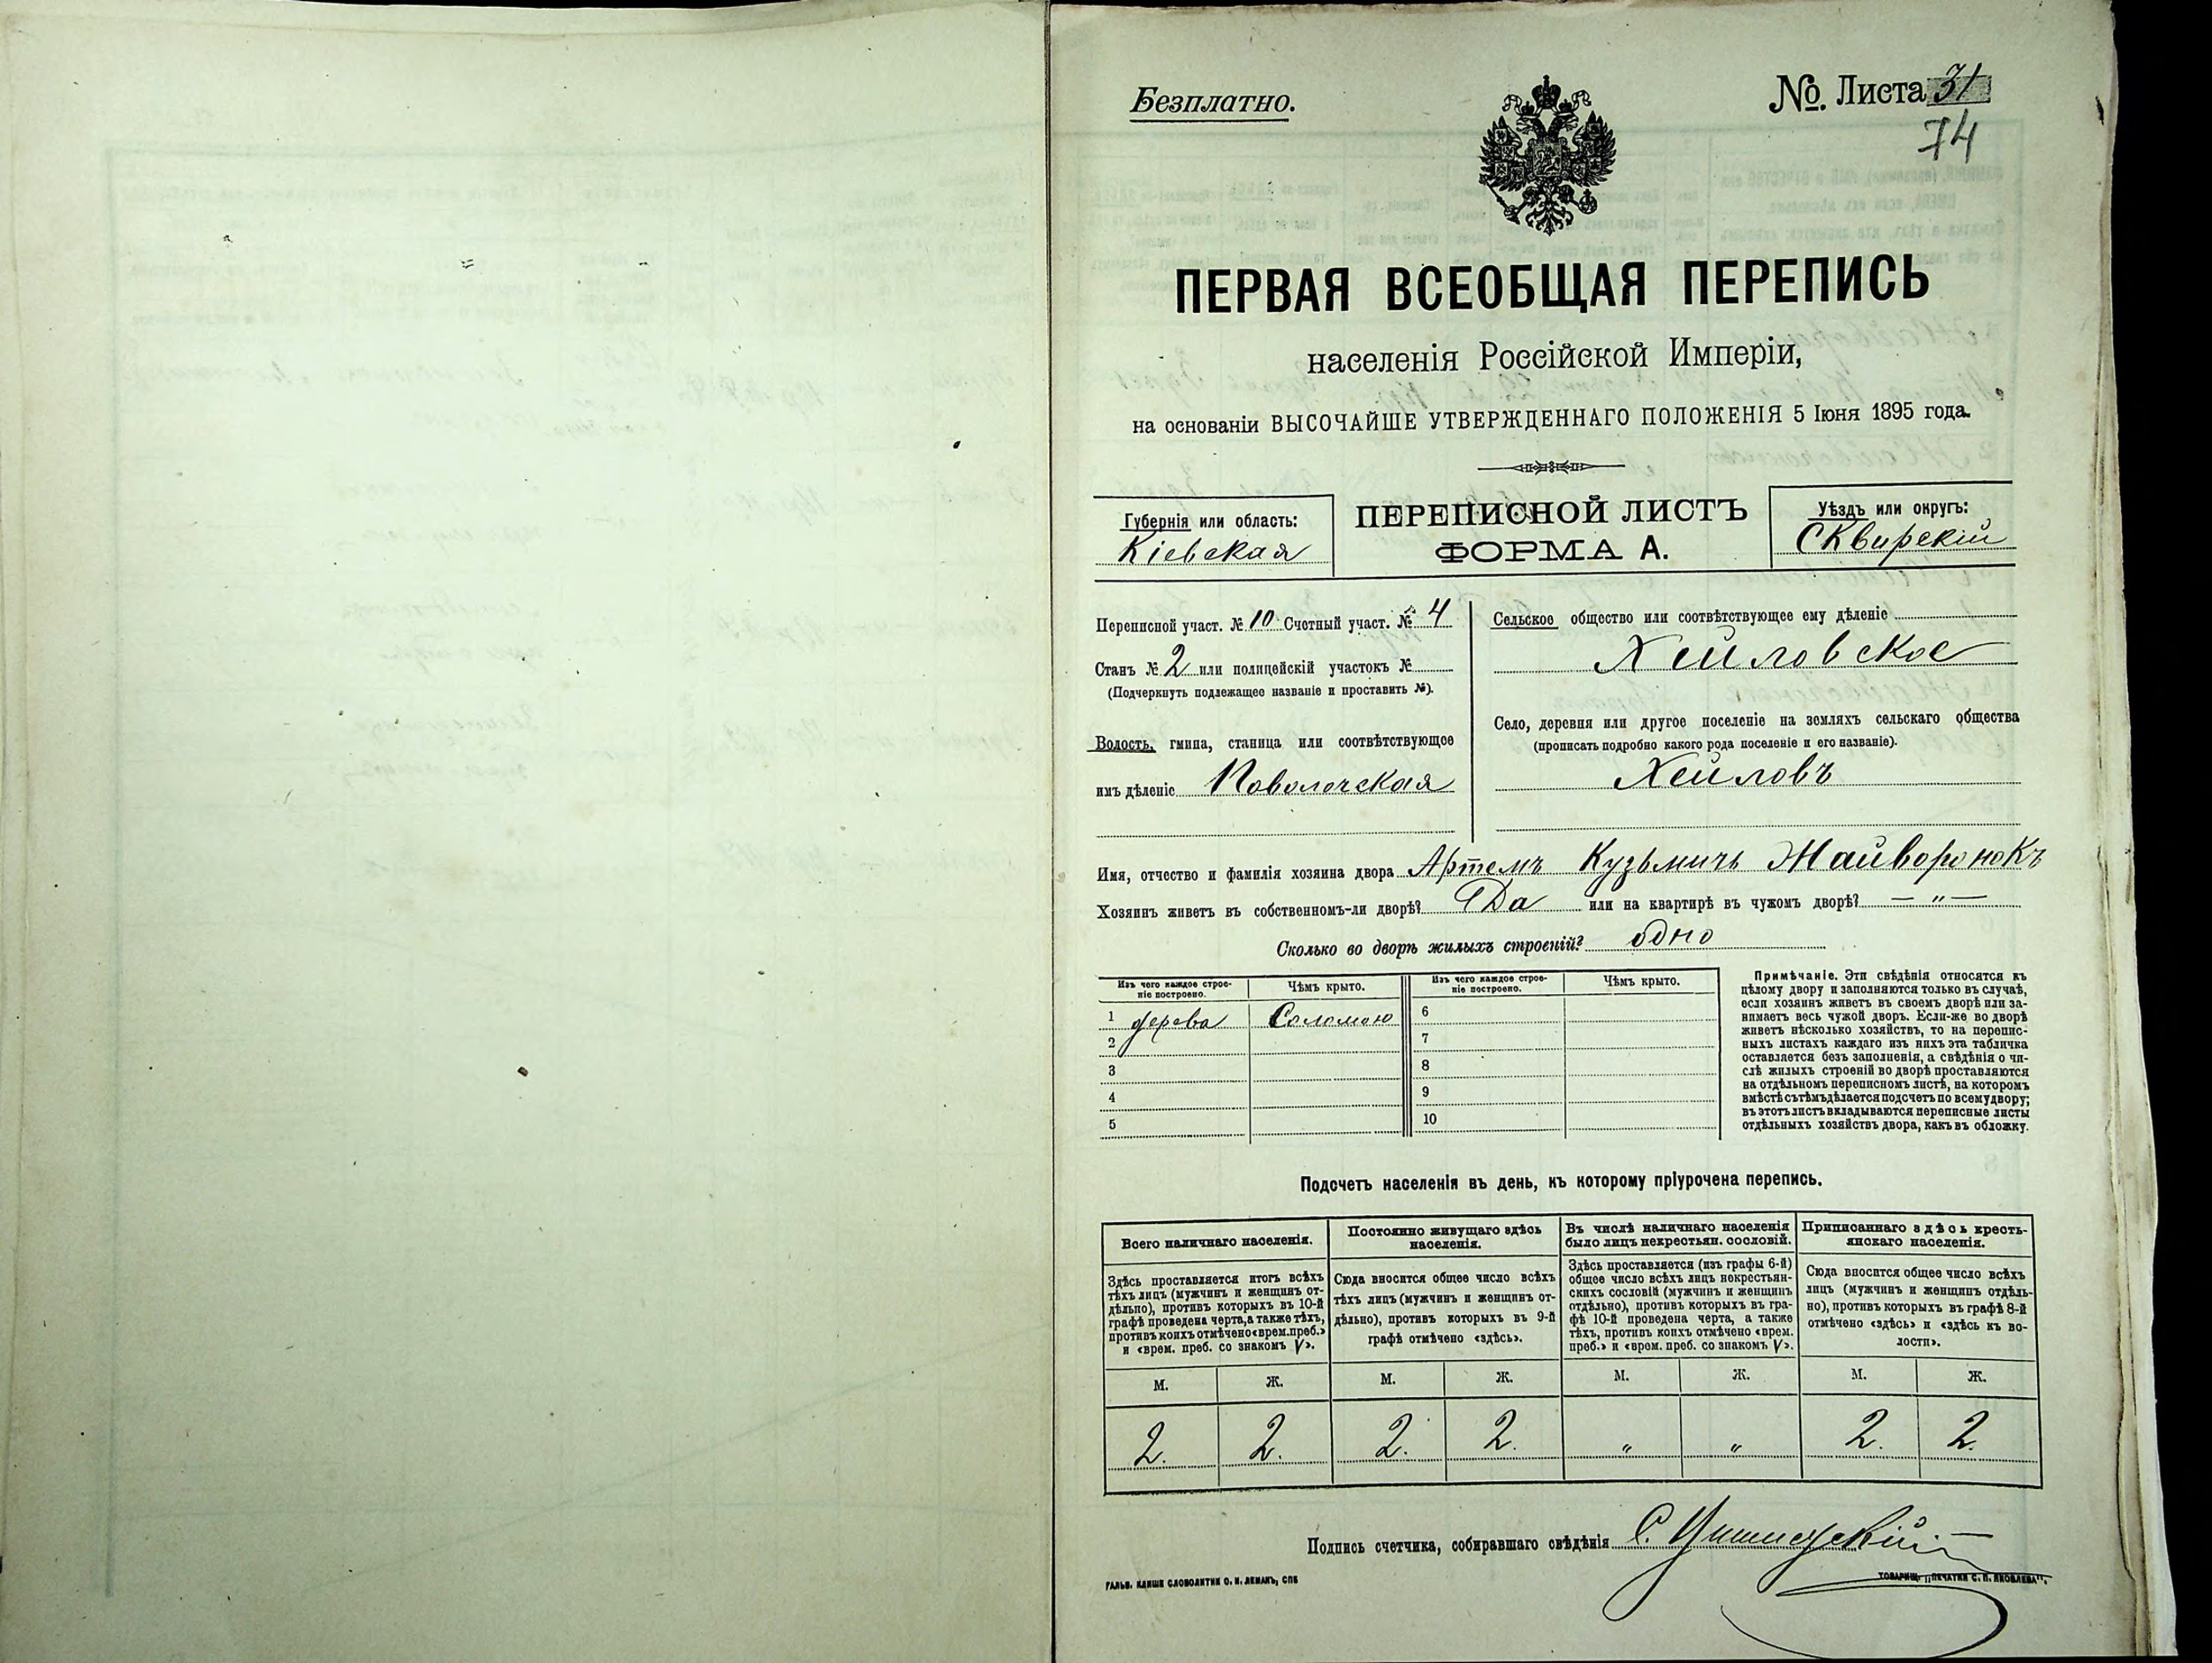 Безплатно.
№. Листа 31
74
ПЕРВАЯ ВСЕОБЩАЯ ПЕРЕПИСЬ
населенія Россійской Имперіи,
на основаніи ВЫСОЧАЙШЕ УТВЕРЖДЕННАГО ПОЛОЖЕНІЯ 5 Іюня 1895 года.
Губернія или область:
Кіевская
ПЕРЕПИСНОЙ ЛИСТЪ
ФОРМА А.
Уѣздъ или округъ:
Сквирскій
Переписной участ. № 10 Счетный участ. № 4
Станъ № 2 или полицейскій участокъ №
(Подчеркнуть подлежащее названіе и проставить №).
Волость, гмина, станица или соотвѣтствующее
имъ дѣленіе Поволочская
Сельское общество или соотвѣтствующее ему дѣленіе
Хейловское
Село, деревня или другое поселеніе на земляхъ сельскаго общества
(прописать подробно какого рода поселеніе и его названіе).
Хейловъ
Имя, отчество и фамилія хозяина двора Артемъ Кузьмичъ Жайворонокъ
Хозяинъ живетъ въ собственномъ-ли дворѣ? Да или на квартирѣ въ чужомъ дворѣ? — „ —
Сколько во дворѣ жилыхъ строеній? одно
Изъ чего каждое строе-
ніе построено.
Чѣмъ крыто.
Изъ чего каждое строе-
ніе построено.
Чѣмъ крыто.
1 дерева Соломою 6
2 7
3 8
4 9
5 10
Примѣчаніе. Эти свѣдѣнія относятся къ
цѣлому двору и заполняются только въ случаѣ,
если хозяинъ живетъ въ своемъ дворѣ или за-
нимаетъ весь чужой дворъ. Если-же во дворѣ
живетъ нѣсколько хозяйствъ, то на перепис-
ныхъ листахъ каждаго изъ нихъ эта табличка
оставляется безъ заполненія, а свѣдѣнія о чи-
слѣ жилыхъ строеній во дворѣ проставляются
на отдѣльномъ переписномъ листѣ, на которомъ
вмѣстѣ съ тѣмъ дѣлается подсчетъ по всему двору;
въ этотъ листъ вкладываются переписные листы
отдѣльныхъ хозяйствъ двора, какъ въ обложку.
Подсчетъ населенія въ день, къ которому пріурочена перепись.
Всего наличнаго населенія.
Здѣсь проставляется итогъ всѣхъ
тѣхъ лицъ (мужчинъ и женщинъ от-
дѣльно), противъ которыхъ въ 10-й
графѣ проведена черта, а также тѣхъ,
противъ коихъ отмѣчено «врем. преб.»
и «врем. преб. со знакомъ V».
Постоянно живущаго здѣсь
населенія.
Сюда вносится общее число всѣхъ
тѣхъ лицъ (мужчинъ и женщинъ от-
дѣльно), противъ которыхъ въ 9-й
графѣ отмѣчено «здѣсь».
Въ числѣ наличнаго населенія
было лицъ некрестьян. сословій.
Здѣсь проставляется (изъ графы 6-й)
общее число всѣхъ лицъ некрестьян-
скихъ сословій (мужчинъ и женщинъ
отдѣльно), противъ которыхъ въ гра-
фѣ 10-й проведена черта, а также
тѣхъ, противъ коихъ отмѣчено «врем.
преб.» и «врем. преб. со знакомъ V».
Приписаннаго здѣсь кресть-
янскаго населенія.
Сюда вносится общее число всѣхъ
лицъ (мужчинъ и женщинъ отдѣль-
но), противъ которыхъ въ графѣ 8-й
отмѣчено «здѣсь» и «здѣсь къ во-
лости».
М. Ж. М. Ж. М. Ж. М. Ж.
2. 2. 2. 2. „ „ 2. 2.
Подпись счетчика, собиравшаго свѣдѣнія С.
ГАЛЬВ. КЛИШЕ СЛОВОЛИТНИ О. И. ЛЕМАНЪ, СПБ
ТОВАРИЩ. „ПЕЧАТНЯ С. П. ЯКОВЛЕВА".